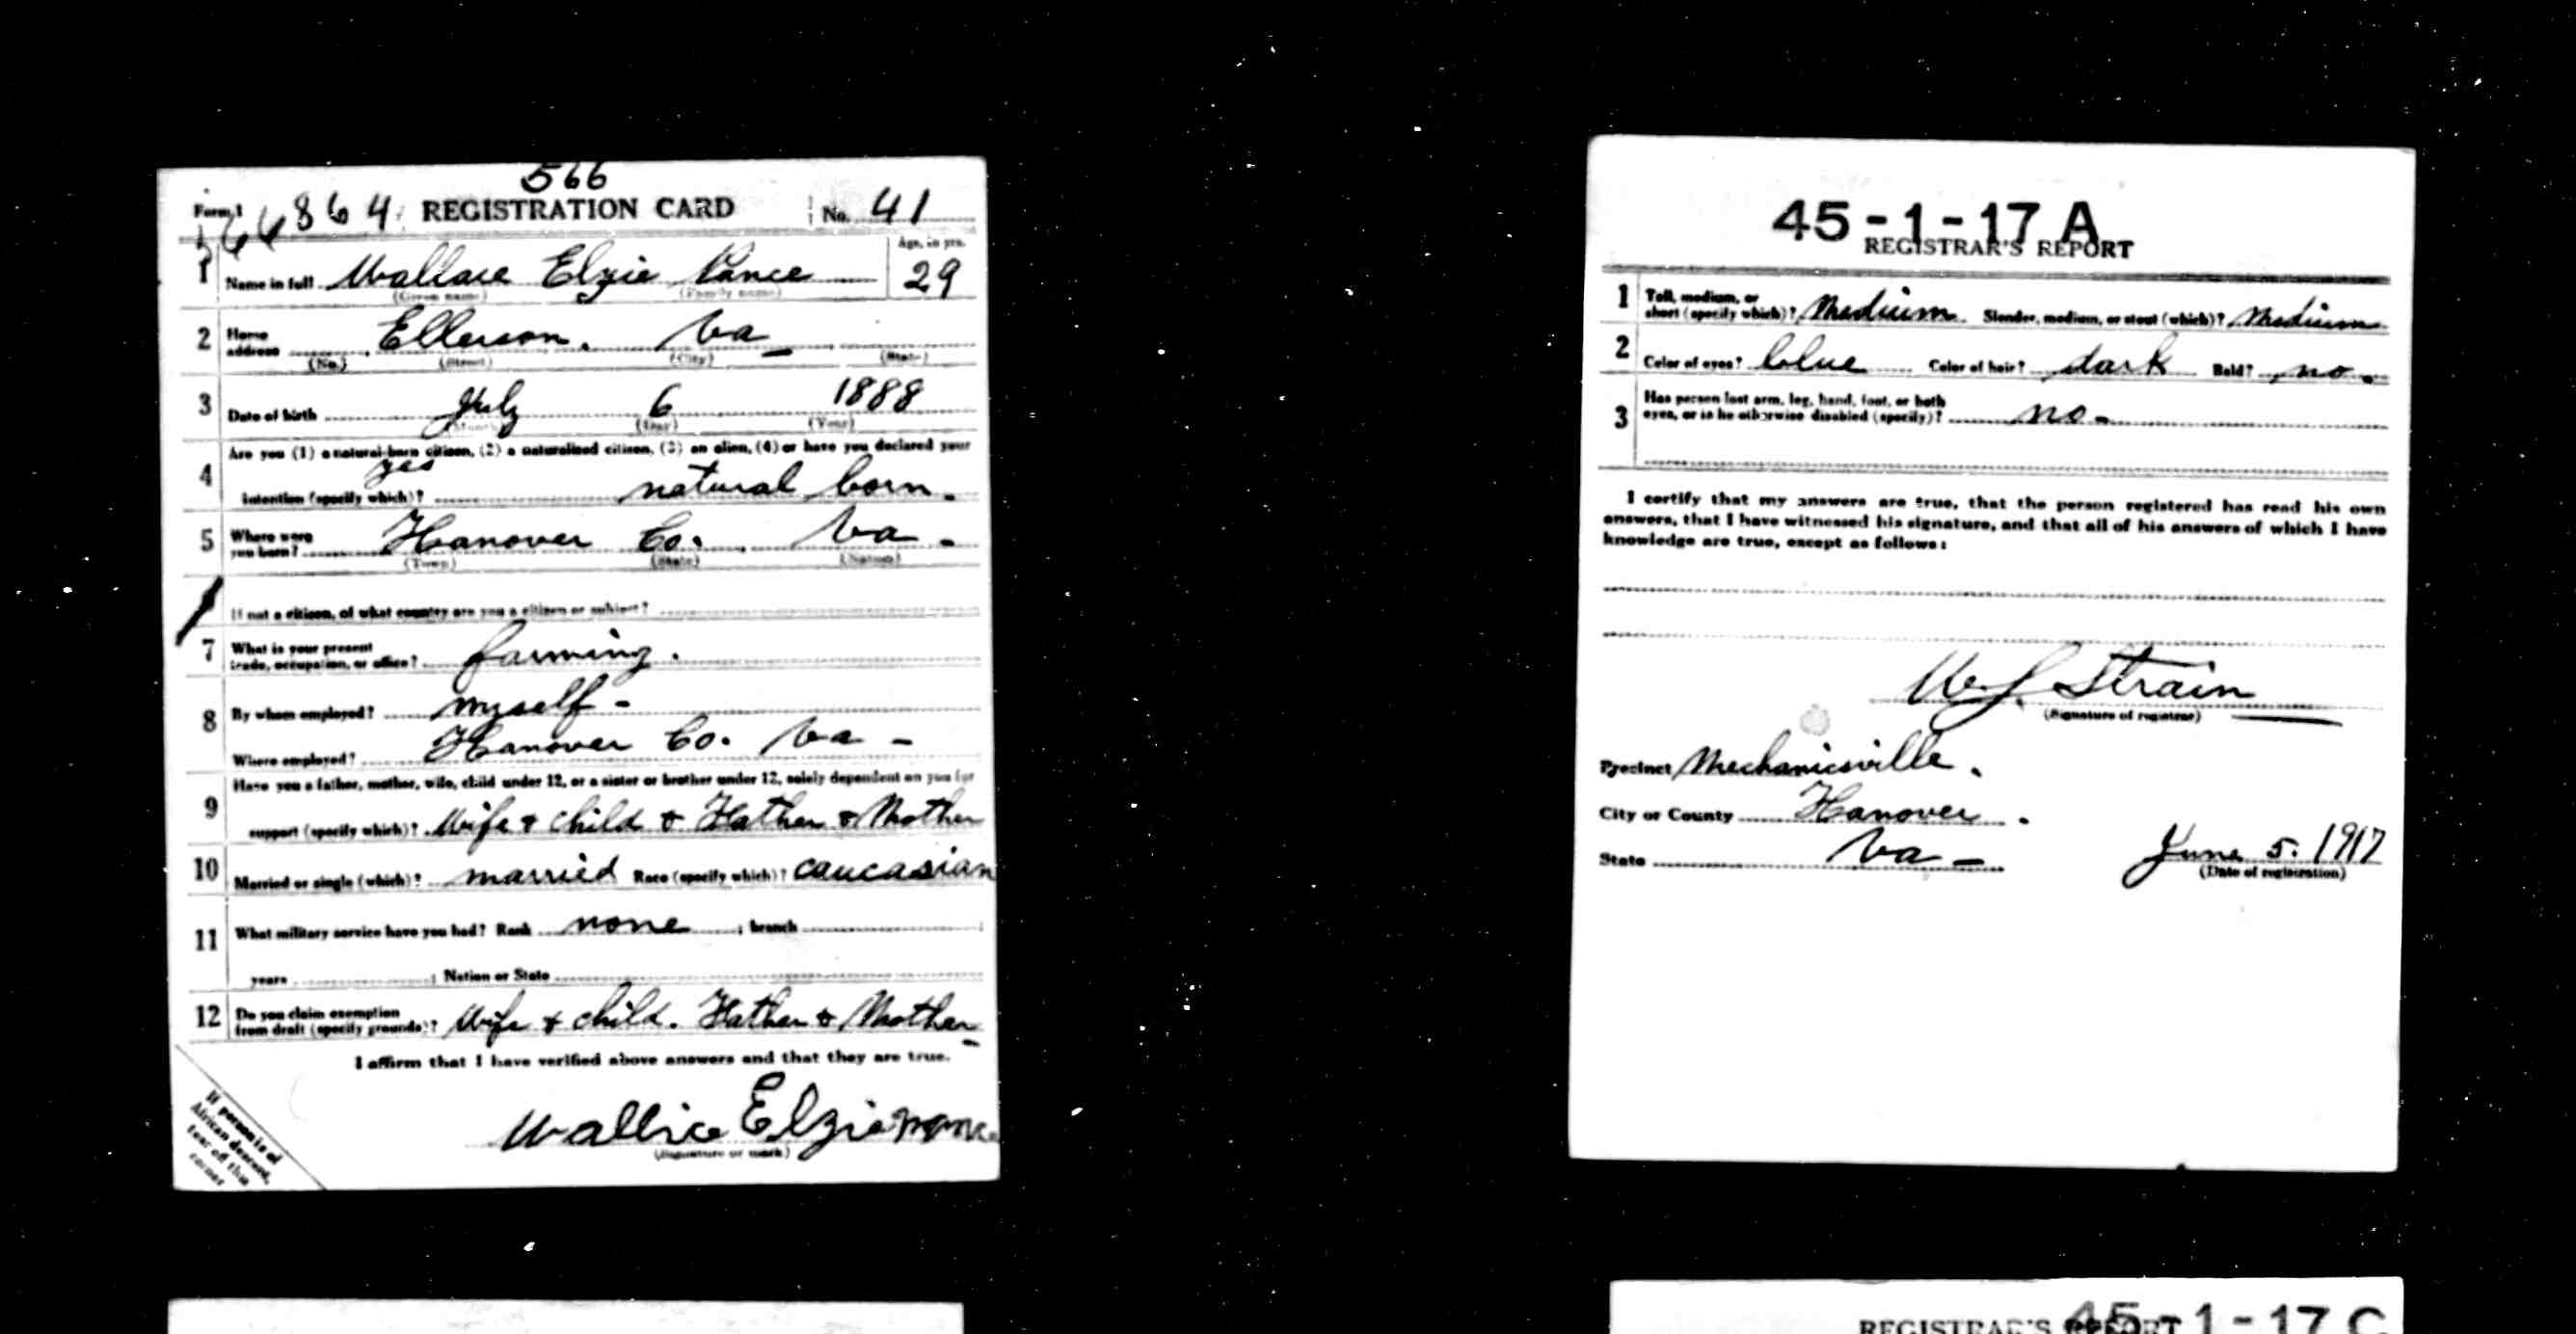 566
Form 1 66864 REGISTRATION CARD No. 41
1 Name in full Wallace Elzie Vance Age, in yrs. 29
(Given name) (Family name)
2 Home address Ellerson, Va
(No.) (Street) (City) (State)
3 Date of birth July 6 1888
(Month) (Day) (Year)
Are you (1) a natural-born citizen, (2) a naturalized citizen, (3) an alien, (4) or have you declared your
yes
4 intention (specify which)? natural born
5 Where were you born? Hanover Co. Va -
(Town) (State) (Nation)
If not a citizen, of what country are you a citizen or subject?
7 What is your present trade, occupation, or office? farming.
8 By whom employed? myself -
Where employed? Hanover Co. Va -
Have you a father, mother, wife, child under 12, or a sister or brother under 12, solely dependent on you for
9 support (specify which)? Wife & child & Father & Mother
10 Married or single (which)? married Race (specify which)? caucasian
11 What military service have you had? Rank none ; branch
years ; Nation or State
12 Do you claim exemption from draft (specify grounds)? Wife & child. Father & Mother
I affirm that I have verified above answers and that they are true.
Wallice Elzie
(Signature or mark)
If person is of
African descent,
tear off this
corner
45-1-17 A
REGISTRAR'S REPORT
1 Tall, medium, or short (specify which)? Medium Slender, medium, or stout (which)? Medium
2 Color of eyes? blue Color of hair? dark Bald? no.
3 Has person lost arm, leg, hand, foot, or both eyes, or is he otherwise disabled (specify)? no -
I certify that my answers are true, that the person registered has read his own
answers, that I have witnessed his signature, and that all of his answers of which I have
knowledge are true, except as follows:
Strain
(Signature of registrar)
Precinct Mechanicsville.
City or County Hanover.
State Va - June 5. 1917
(Date of registration)
45-1-17 C
REGISTRAR'S REPORT